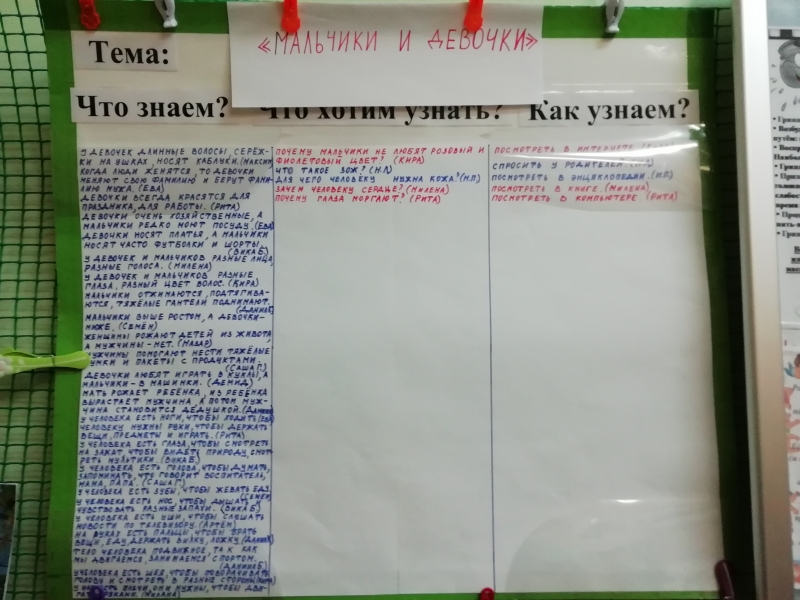 Тема:
«МАЛЬЧИКИ И ДЕВОЧКИ»
Что знаем?
Что хотим узнать?
Как узнаем?
У ДЕВОЧЕК ДЛИННЫЕ ВОЛОСЫ, СЕРЁЖ-
КИ НА УШКАХ, НОСЯТ КАБЛУКИ.(МАКСИМ)
КОГДА ЛЮДИ ЖЕНЯТСЯ, ТО ДЕВОЧКИ
МЕНЯЮТ СВОЮ ФАМИЛИЮ И БЕРУТ ФАМИ-
ЛИЮ МУЖА. (ЕВА)
ДЕВОЧКИ ВСЕГДА КРАСЯТСЯ ДЛЯ
ПРАЗДНИКА, ДЛЯ РАБОТЫ. (РИТА)
ДЕВОЧКИ ОЧЕНЬ ХОЗЯЙСТВЕННЫЕ, А
МАЛЬЧИКИ РЕДКО МОЮТ ПОСУДУ.(ЕВА)
ДЕВОЧКИ НОСЯТ ПЛАТЬЯ, А МАЛЬЧИКИ
НОСЯТ ЧАСТО ФУТБОЛКИ И ШОРТЫ.
(ВИКА Б.)
У ДЕВОЧЕК И МАЛЬЧИКОВ РАЗНЫЕ ЛИЦА,
РАЗНЫЕ ГОЛОСА. (МИЛЕНА)
У ДЕВОЧЕК И МАЛЬЧИКОВ РАЗНЫЕ
ГЛАЗА, РАЗНЫЙ ЦВЕТ ВОЛОС. (КИРА)
МАЛЬЧИКИ ОТЖИМАЮТСЯ, ПОДТЯГИВА-
ЮТСЯ, ТЯЖЁЛЫЕ ГАНТЕЛИ ПОДНИМАЮТ.
МАЛЬЧИКИ ВЫШЕ РОСТОМ, А ДЕВОЧКИ-
НИЖЕ. (СЕМЁН)
ЖЕНЩИНЫ РОЖАЮТ ДЕТЕЙ ИЗ ЖИВОТА,
А МУЖЧИНЫ - НЕТ. (НАЗАР)
МУЖЧИНЫ ПОМОГАЮТ НЕСТИ ТЯЖЁЛЫЕ
СУМКИ И ПАКЕТЫ С ПРОДУКТАМИ.
(САША Г.)
ДЕВОЧКИ ЛЮБЯТ ИГРАТЬ В КУКЛЫ, А
МАЛЬЧИКИ - В МАШИНКИ. (ДЕМИД)
МАТЬ РОЖАЕТ РЕБЁНКА, ИЗ РЕБЁНКА
ВЫРАСТАЕТ МУЖЧИНА, А ПОТОМ МУЖ-
ЧИНА СТАНОВИТСЯ ДЕДУШКОЙ.
У ЧЕЛОВЕКА ЕСТЬ НОГИ, ЧТОБЫ ХОДИТЬ.(ЕВА)
ЧЕЛОВЕКУ НУЖНЫ РУКИ, ЧТОБЫ ДЕРЖАТЬ
ВЕЩИ, ПРЕДМЕТЫ И ИГРАТЬ. (РИТА)
У ЧЕЛОВЕКА ЕСТЬ ГЛАЗА, ЧТОБЫ СМОТРЕТЬ
НА ЗАКАТ, ЧТОБЫ ВИДЕТЬ ПРИРОДУ, СМОТ-
РЕТЬ МУЛЬТИКИ. (ВИКА Б.)
У ЧЕЛОВЕКА ЕСТЬ ГОЛОВА, ЧТОБЫ ДУМАТЬ,
ЗАПОМИНАТЬ, ЧТО ГОВОРИТ ВОСПИТАТЕЛЬ,
МАМА, ПАПА. (САША Г.)
У ЧЕЛОВЕКА ЕСТЬ ЗУБЫ, ЧТОБЫ ЖЕВАТЬ ЕДУ.
(СЕМЁН)
У ЧЕЛОВЕКА ЕСТЬ НОС, ЧТОБЫ ДЫШАТЬ,
ЧУВСТВОВАТЬ РАЗНЫЕ ЗАПАХИ. (ВИКА Б.)
У ЧЕЛОВЕКА ЕСТЬ УШИ, ЧТОБЫ СЛУШАТЬ
НОВОСТИ ПО ТЕЛЕВИЗОРУ. (АРТЁМ)
НА РУКАХ ЕСТЬ ПАЛЬЦЫ, ЧТОБЫ БРАТЬ
ВЕЩИ, ЕДУ, ДЕРЖАТЬ ВИЛКУ, ЛОЖКУ.
ТЕЛО ЧЕЛОВЕКА ПОДВИЖНОЕ, ТАК КАК
МЫ ДВИГАЕМСЯ, ЗАНИМАЕМСЯ СПОРТОМ.
У ЧЕЛОВЕКА ЕСТЬ ШЕЯ, ЧТОБЫ ПОВОРАЧИВАТЬ
ГОЛОВУ И СМОТРЕТЬ В РАЗНЫЕ СТОРОНЫ.
ПЛЕЧИ, ОНИ НУЖНЫ, ЧТОБЫ
РУКАМИ. (МИЛАНА)
ПОЧЕМУ МАЛЬЧИКИ НЕ ЛЮБЯТ РОЗОВЫЙ И
ФИОЛЕТОВЫЙ ЦВЕТ? (КИРА)
ЧТО ТАКОЕ ЗОЖ? (Н.Л)
ДЛЯ ЧЕГО ЧЕЛОВЕКУ НУЖНА КОЖА?
ЗАЧЕМ ЧЕЛОВЕКУ СЕРДЦЕ? (МИЛЕНА)
ПОЧЕМУ ГЛАЗА МОРГАЮТ? (РИТА)
ПОСМОТРЕТЬ В ИНТЕРНЕТЕ
СПРОСИТЬ У РОДИТЕЛЕЙ
ПОСМОТРЕТЬ В ЭНЦИКЛОПЕДИИ.
ПОСМОТРЕТЬ В КНИГЕ. (МИЛЕНА)
ПОСМОТРЕТЬ В КОМПЬЮТЕРЕ. (РИТА)